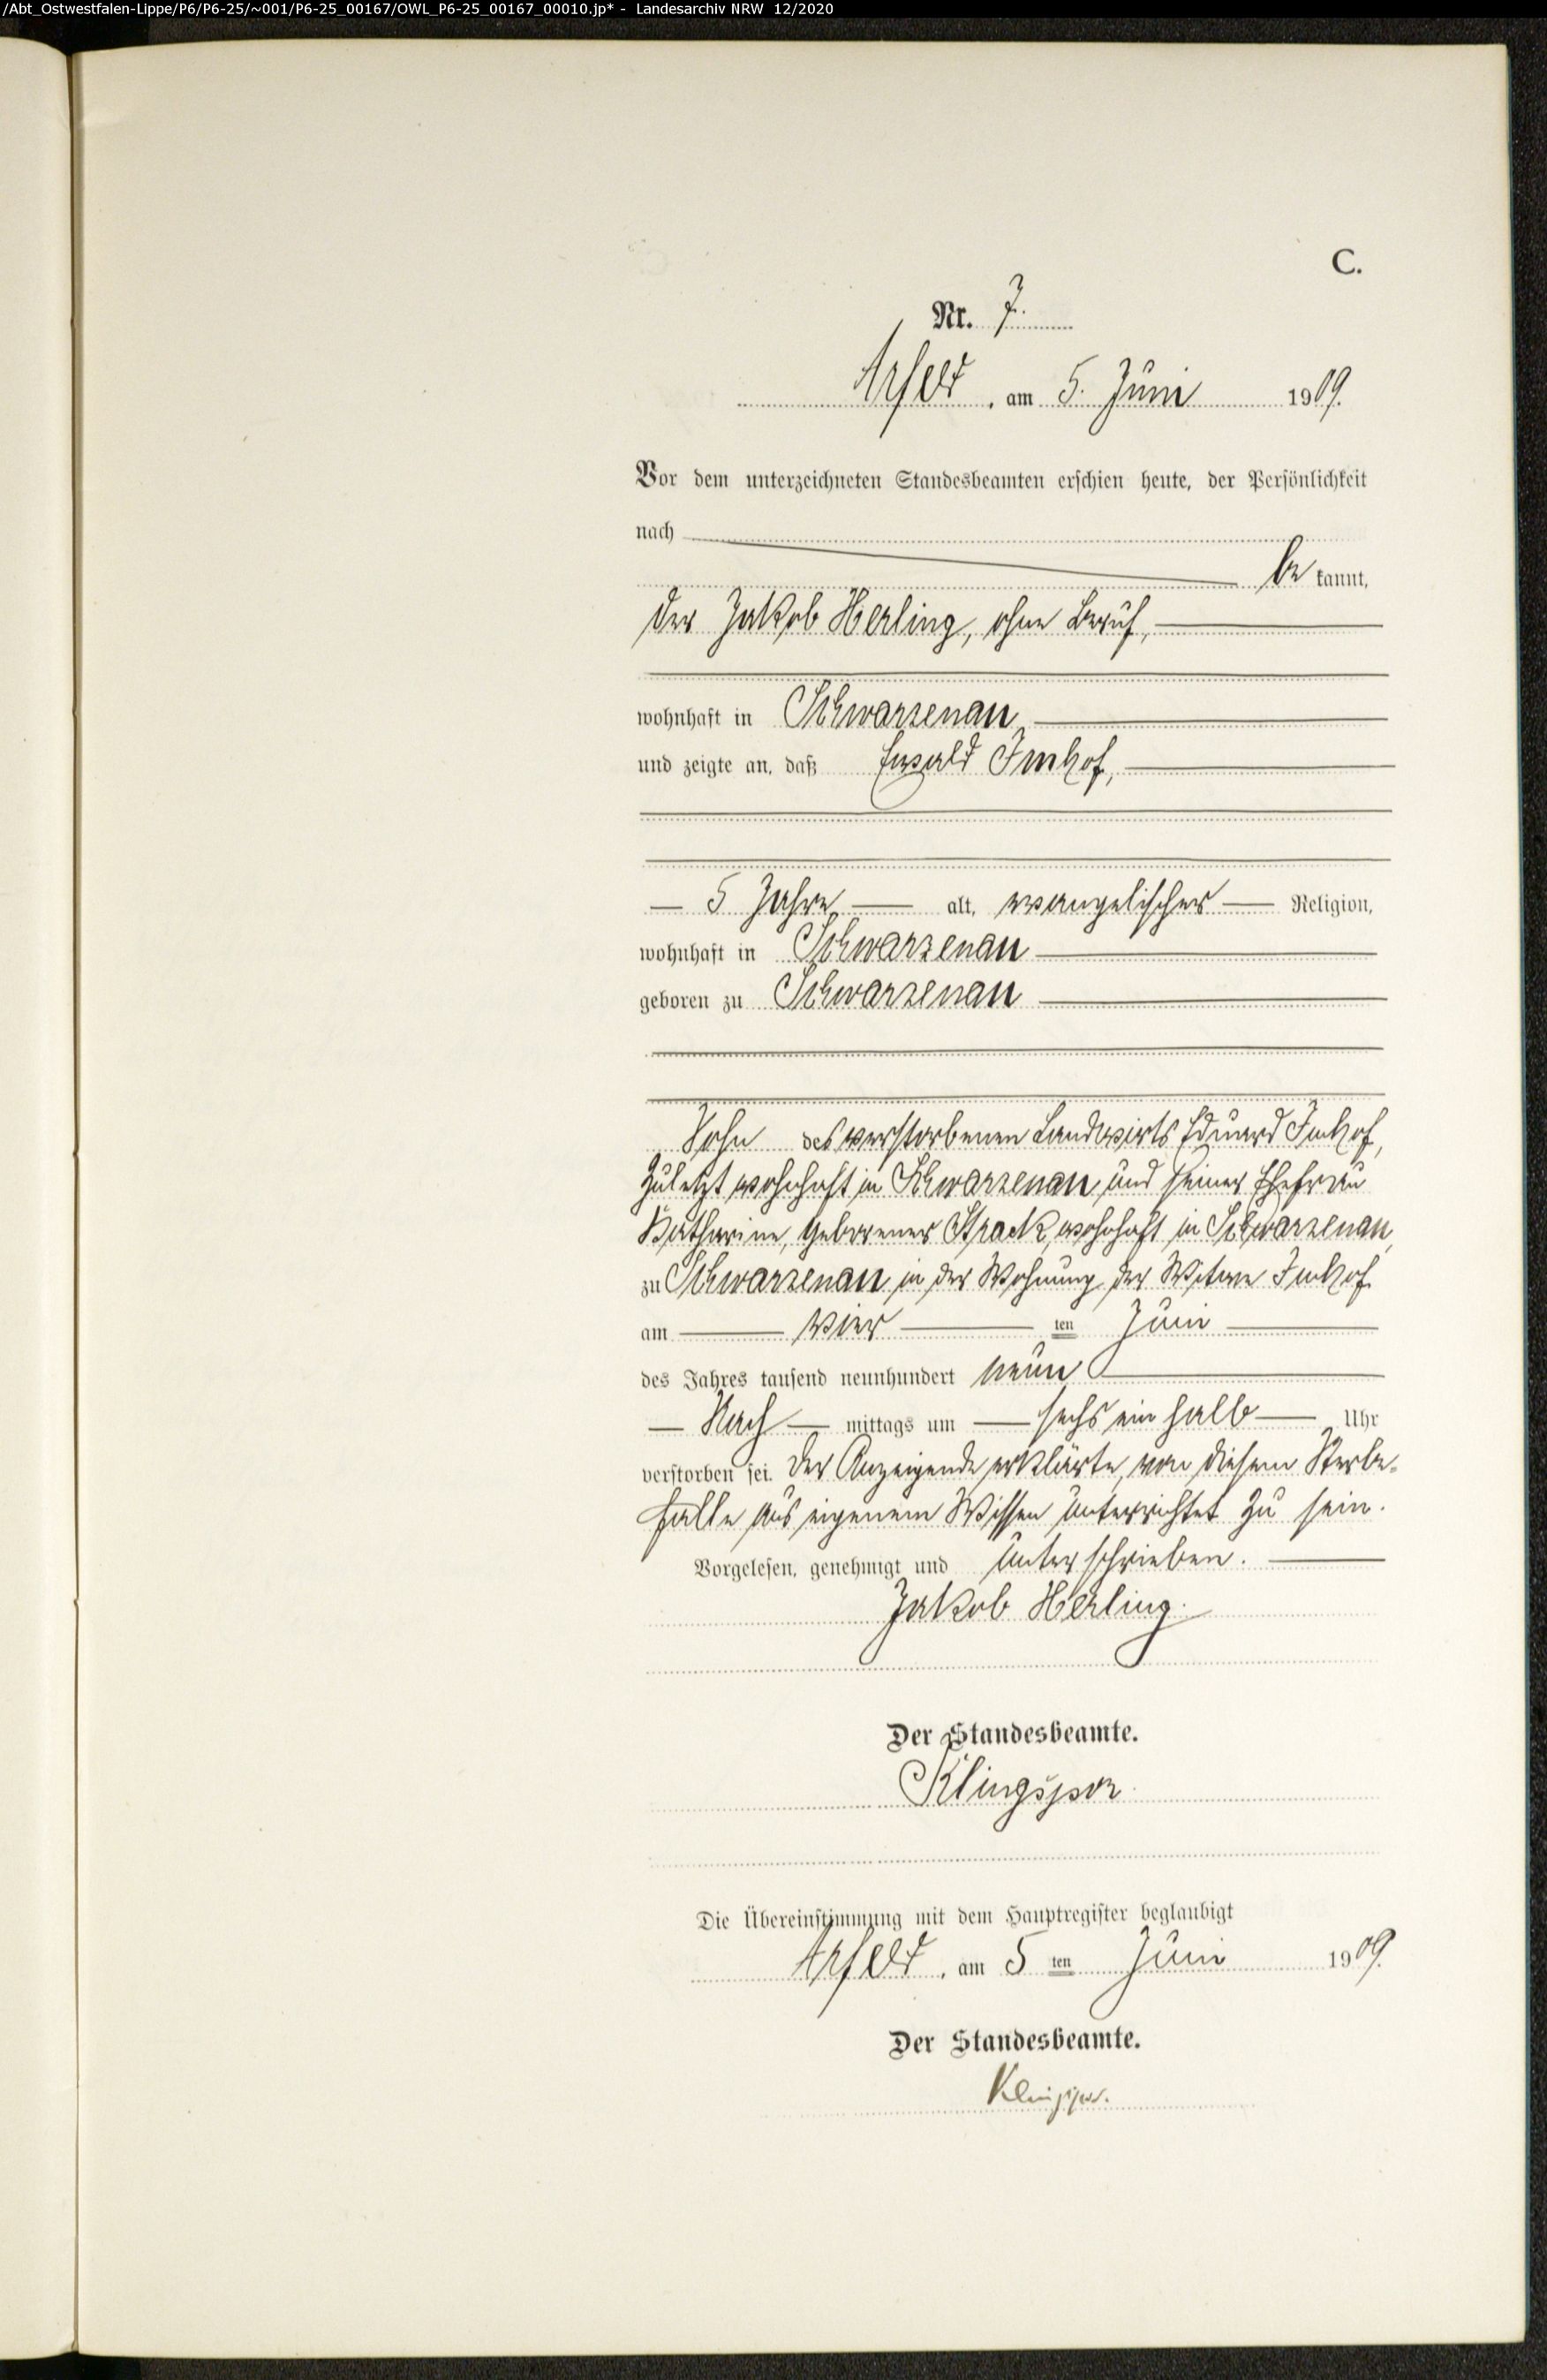 /Abt_Ostwestfalen-Lippe/P6/P6-25/~001/P6-25_00167/OWL_P6-25_00167_00010.jp* - Landesarchiv NRW 12/2020
C.
Nr. 7.
Arfeld, am 5. Juni 1909.
Vor dem unterzeichneten Standesbeamten erschien heute, der Persönlichkeit
nach
be kannt,
der Jakob Herling, ohne Beruf,
wohnhaft in Schwarzenau
und zeigte an, daß Ewald Imhof,
5 Jahre alt, evangelischer Religion,
wohnhaft in Schwarzenau
geboren zu Schwarzenau
Sohn des verstorbenen Landwirts Eduard Imhof,
zuletzt wohnhaft in Schwarzenau und seiner Ehefrau
Katharine, geborener Strack, wohnhaft in Schwarzenau,
zu Schwarzenau in der Wohnung der Witwe Imhof
am vier ten Juni
des Jahres tausend neunhundert neun
Nach mittags um sechs ein halb Uhr
verstorben sei. Der Anzeigende erklärte, von diesem Sterbe-
falle aus eigenem Wissen unterrichtet zu sein.
Vorgelesen, genehmigt und unterschrieben.
Jakob Herling.
Der Standesbeamte.
Klingspor.
Die Übereinstimmung mit dem Hauptregister beglaubigt
Arfeld, am 5 ten Juni 1909.
Der Standesbeamte.
Klingspor.